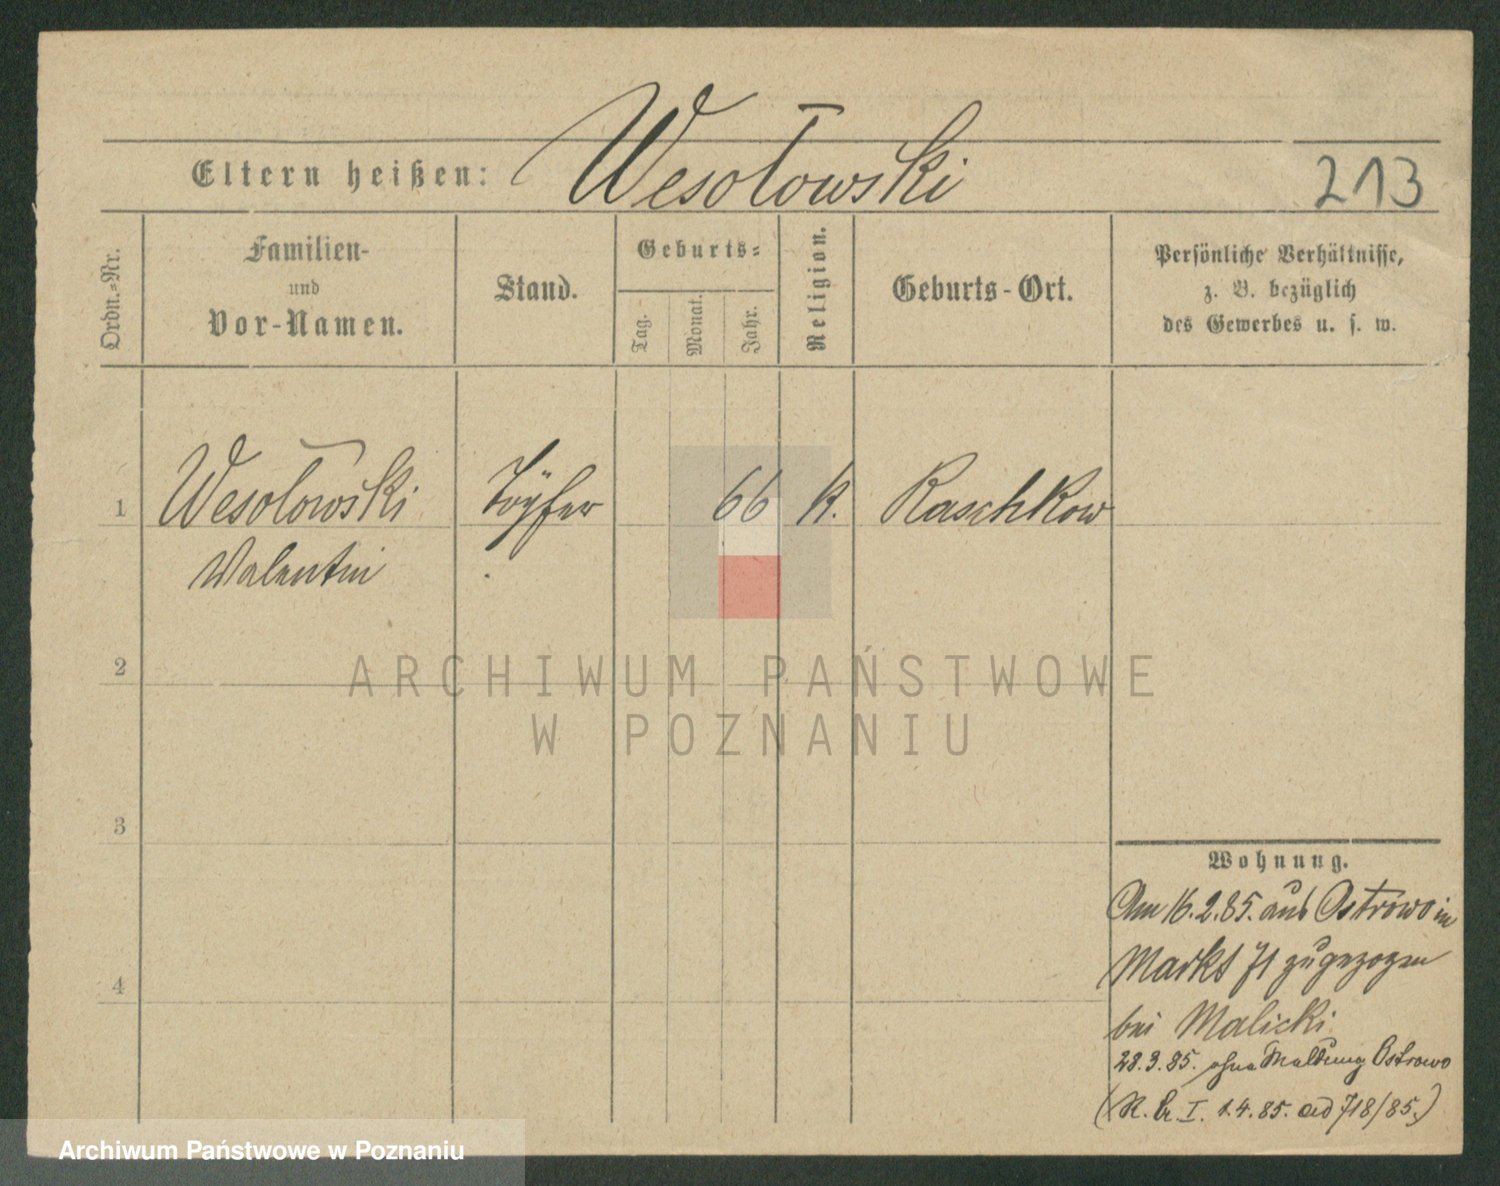 Eltern heißen: Wesołowski 213
Ordn.-Nr.
Familien-
und
Vor-Namen.
Stand.
Geburts-
Tag.
Monat.
Jahr.
Religion.
Geburts-Ort.
Persönliche Verhältnisse,
z. B. bezüglich
des Gewerbes u. s. w.
1 Wesołowski Töpfer 66 k. Raschkow
Valentin
2
ARCHIWUM PAŃSTWOWE
W POZNANIU
3
4
Wohnung.
Am 16.2.85. aus Ostrowo in
Markt 71 zugezogen
bei Malicki
28.3.85. ohne Meldung Ostrowo
(R. I. 1.4.85. ad 718/85.)
Archiwum Państwowe w Poznaniu